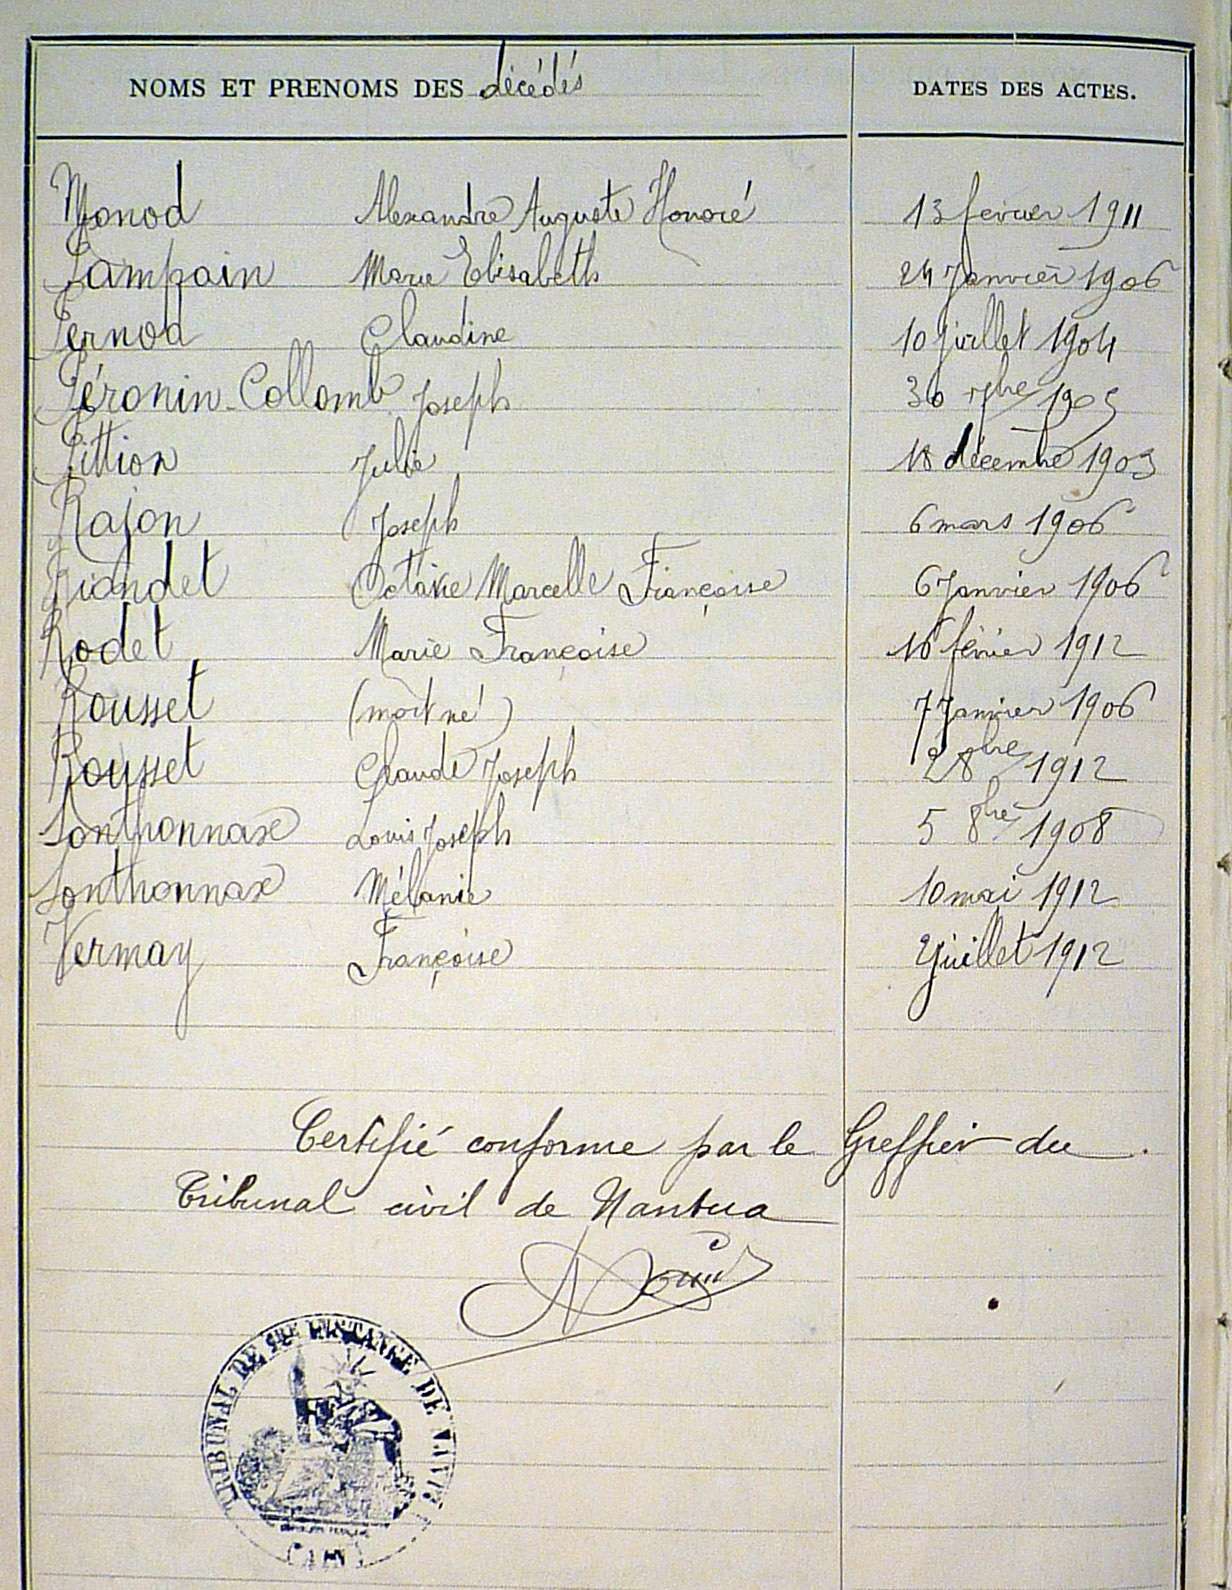 NOMS ET PRENOMS DES décédés DATES DES ACTES.
Monod Alexandre Auguste Honoré 13 février 1911
Pampain Marie Elisabeth 24 Janvier 1906
Pernod Claudine 10 juillet 1904
Péronin-Collomb Joseph 30 7bre 1905
Pittion Julie 18 décembre 1903
Rajon Joseph 6 mars 1906
Riondet Octavie Marcelle Françoise 6 Janvier 1906
Rodet Marie Françoise 16 février 1912
Rousset (mort né) 7 Janvier 1906
Rousset Claude Joseph 2 8bre 1912
Sonthonnax Louis Joseph 5 8bre 1908
Sonthonnax Mélanie 10 mai 1912
Vermay Françoise 2 juillet 1912
Certifié conforme par le Greffier du
Tribunal civil de Nantua
TRIBUNAL DE 1RE INSTANCE DE